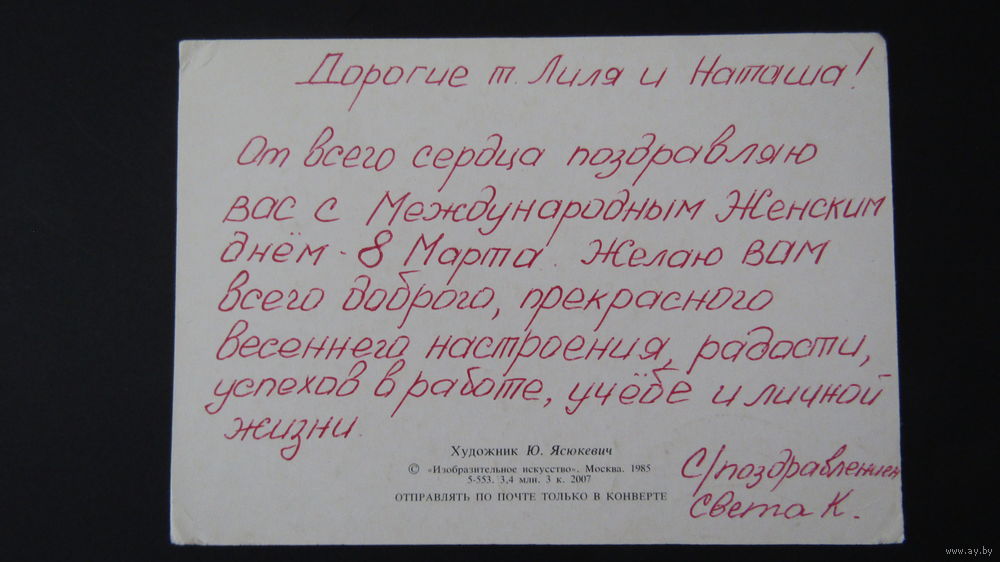 Дорогие т. Лиля и Наташа!
От всего сердца поздравляю
вас с Международным Женским
днём - 8 Марта. Желаю вам
всего доброго, прекрасного
весеннего настроения, радости,
успехов в работе, учёбе и личной
жизни.
Художник Ю. Ясюкевич
© «Изобразительное искусство». Москва. 1985
5-553. 3,4 млн. 3 к. 2007
ОТПРАВЛЯТЬ ПО ПОЧТЕ ТОЛЬКО В КОНВЕРТЕ
С/поздравлением
Света К.
www.ay.by